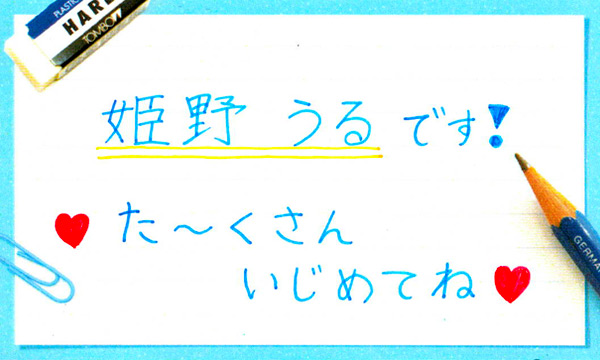 PLASTIC
HARD
TOMBOW
姫野 うる です!
た〜くさん
いじめてね
GERMAN